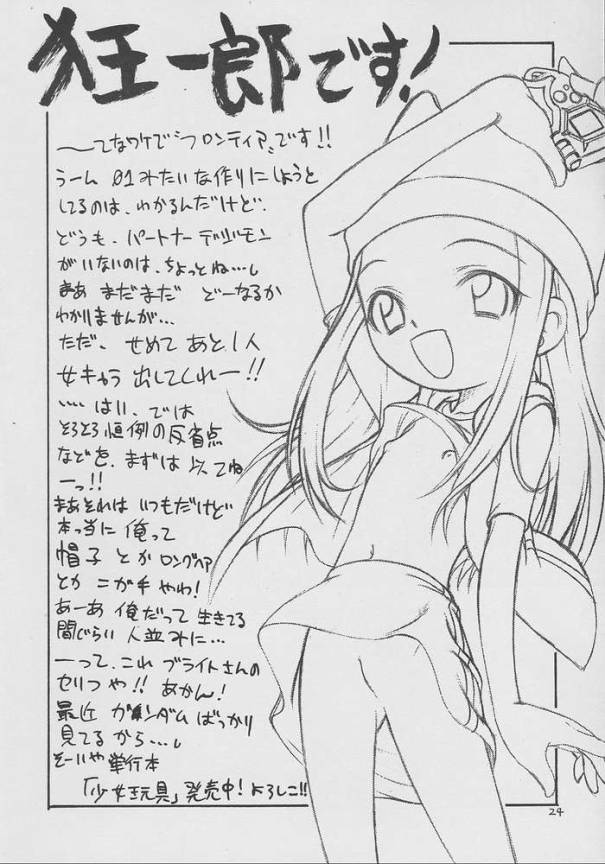 狂一郎です!
〜てなワケで“フロンティア”です!!
うーむ 01みたいな作りにしようと
してるのは、わかるんだけど、
どうも、パートナーデジモン
がいないのは、ちょっとね…し
まあ まだまだ どーなるか
わかりませんが…
ただ、せめて あと1人
女キャラ 出してくれー!!
…… はい、では
そろそろ恒例の反省点
などを、まずは 似てね
ーっ!!
まあそれは いつもだけど
本っ当に 俺って
帽子 とか ロングヘア
とか ニガ手 やわ!
あーあ 俺だって 生きてる
間ぐらい 人並みに…
ーって、これ ブライトさんの
セリフや!! あかん!
最近 ガンダム ばっかり
見てるから…し
そーいや 単行本
「少女玩具」発売中! よろしこ!!
24